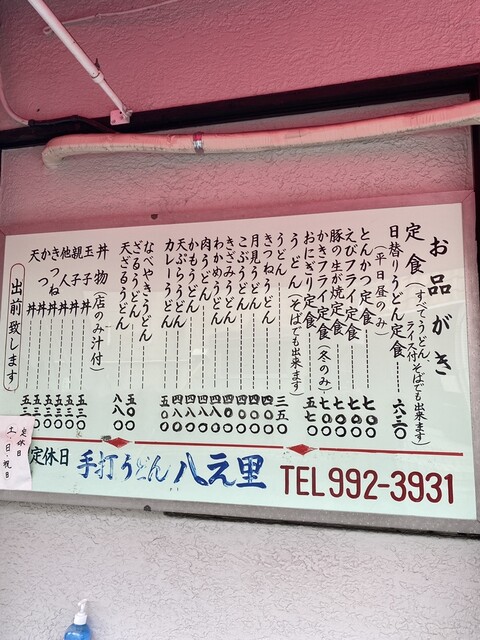 お品がき
定食(すべてうどん、ライス付 そばでも出来ます)
日替りうどん定食 六三〇
(平日昼のみ)
とんかつ定食 七〇〇
えびフライ定食 七〇〇
豚の生が焼定食 七〇〇
かきフライ定食(冬のみ) 七〇〇
おにぎり定食 五七〇
うどん(そばでも出来ます)
うどん 三五〇
きつねうどん 四〇〇
月見うどん 四〇〇
こぶうどん 四〇〇
きざみうどん 四〇〇
わかめうどん 四八〇
肉うどん 四八〇
かもうどん 四八〇
天ぷらうどん 四八〇
カレーうどん 五〇〇
なべやきうどん
ざるうどん
天ざるうどん
丼物(店のみ汁付)
玉子丼 五三〇
親子丼 五三〇
他人丼
きつね丼
かつ丼
天丼
出前致します
定休日
土、日、祝日
定休日
手打うどん 八え里
TEL 992-3931